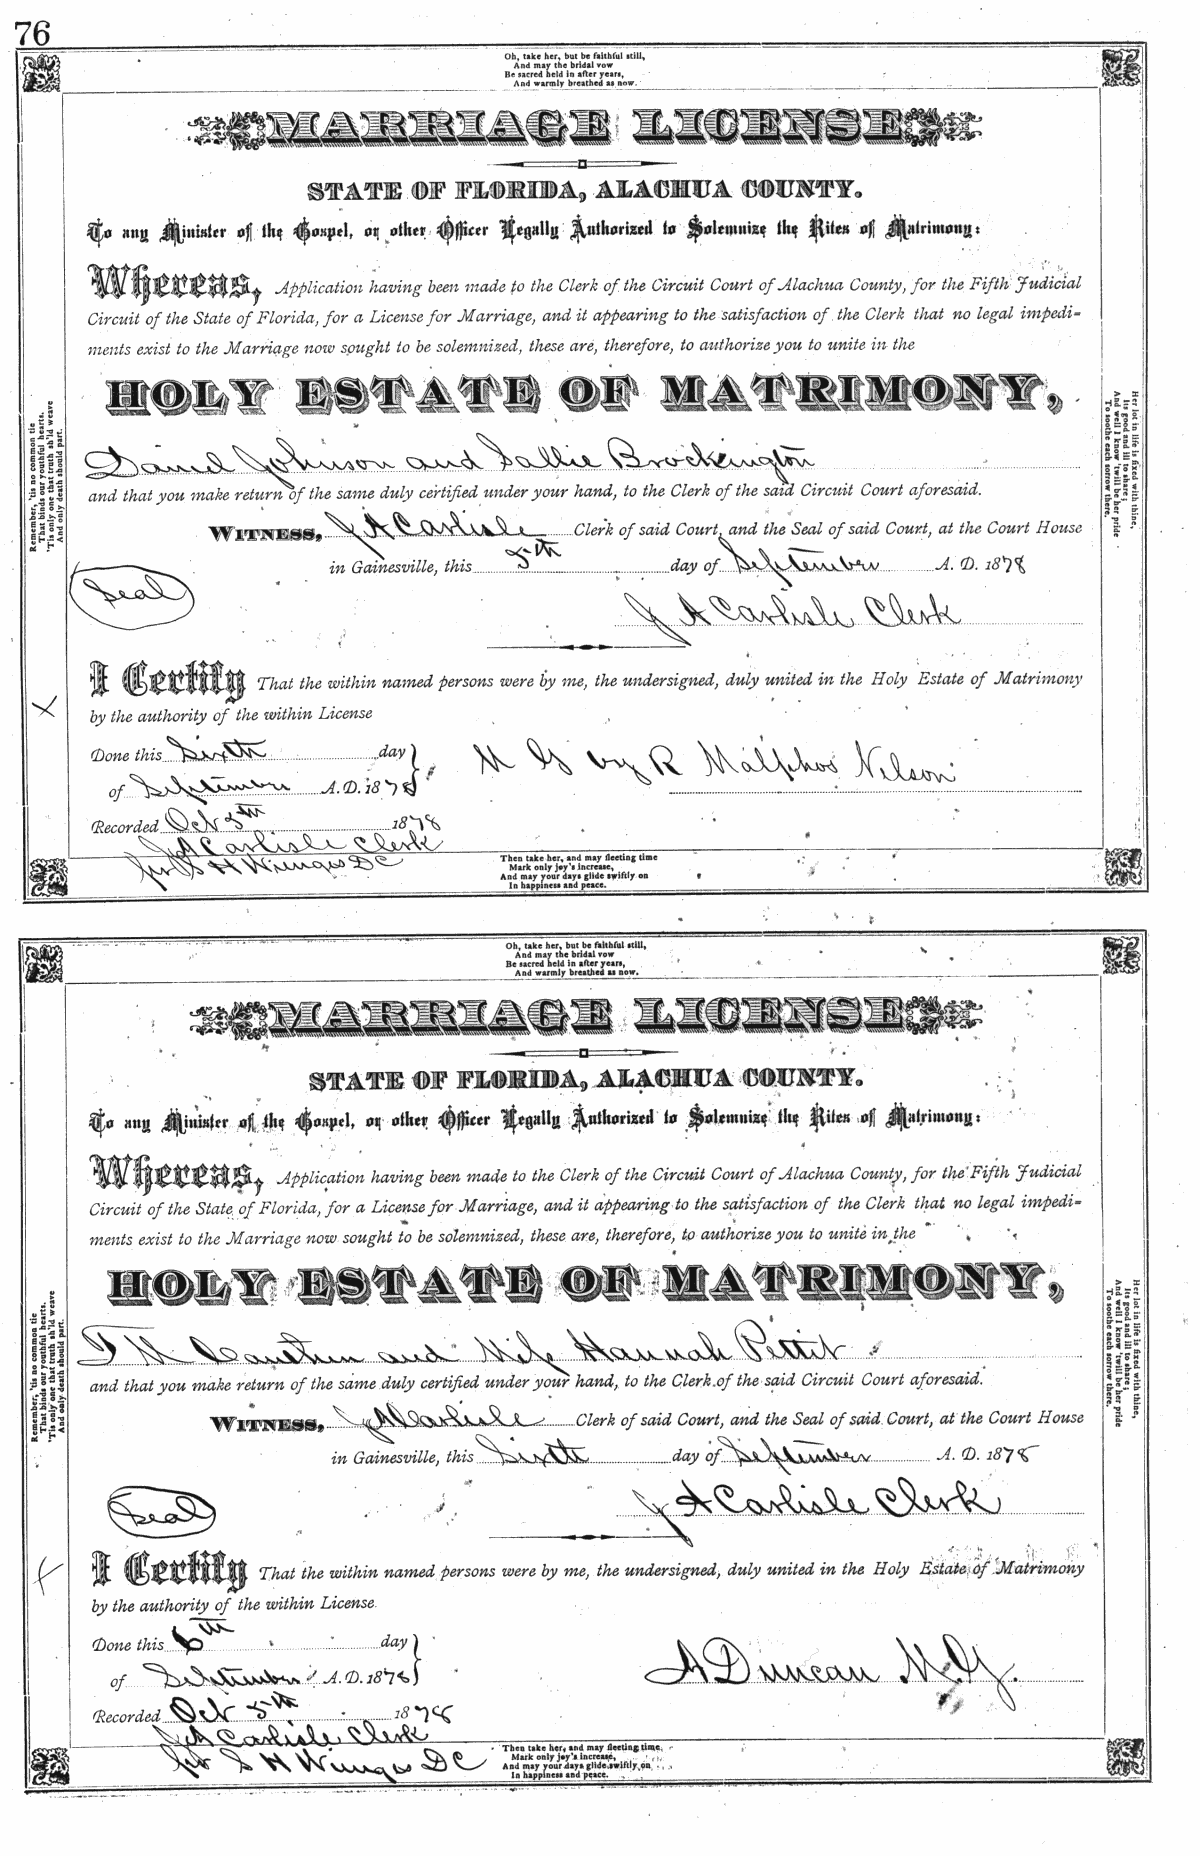 76
Oh, take her, but be faithful still,
And may the bridal vow
Be sacred held in after years,
And warmly breathed as now.
MARRIAGE LICENSE
STATE OF FLORIDA, ALACHUA COUNTY.
To any Minister of the Gospel, or other Officer Legally Authorized to Solemnize the Rites of Matrimony:
Whereas, Application having been made to the Clerk of the Circuit Court of Alachua County, for the Fifth Judicial
Circuit of the State of Florida, for a License for Marriage, and it appearing to the satisfaction of the Clerk that no legal impedi-
ments exist to the Marriage now sought to be solemnized, these are, therefore, to authorize you to unite in the
HOLY ESTATE OF MATRIMONY,
Daniel Johnson and Sallie Brockington
and that you make return of the same duly certified under your hand, to the Clerk of the said Circuit Court aforesaid.
WITNESS, J A Carlisle Clerk of said Court, and the Seal of said Court, at the Court House
in Gainesville, this 5th day of September A. D. 1878
Seal
J A Carlisle Clerk
I Certify That the within named persons were by me, the undersigned, duly united in the Holy Estate of Matrimony
by the authority of the within License
Done this Sixth day
of September A. D. 1878
M G by R Malphos Nelson
Recorded Oct 5th 1878
J A Carlisle Clerk
per S H Wienges D C
Remember, 'tis no common tie
That binds our youthful hearts,
'Tis only one that truth sh'ld weave
And only death should part.
Her lot in life is fixed with thine,
Its good and ill to share;
And well I know 'twill be her pride
To soothe each sorrow there.
Then take her, and may fleeting time
Mark only joy's increase,
And may your days glide swiftly on
In happiness and peace.
Oh, take her, but be faithful still,
And may the bridal vow
Be sacred held in after years,
And warmly breathed as now.
MARRIAGE LICENSE
STATE OF FLORIDA, ALACHUA COUNTY.
To any Minister of the Gospel, or other Officer Legally Authorized to Solemnize the Rites of Matrimony:
Whereas, Application having been made to the Clerk of the Circuit Court of Alachua County, for the Fifth Judicial
Circuit of the State of Florida, for a License for Marriage, and it appearing to the satisfaction of the Clerk that no legal impedi-
ments exist to the Marriage now sought to be solemnized, these are, therefore, to authorize you to unite in the
HOLY ESTATE OF MATRIMONY,
M and Miss Hannah Pettit
and that you make return of the same duly certified under your hand, to the Clerk of the said Circuit Court aforesaid.
WITNESS, J A Carlisle Clerk of said Court, and the Seal of said Court, at the Court House
in Gainesville, this Sixth day of September A. D. 1878
Seal
J A Carlisle Clerk
I Certify That the within named persons were by me, the undersigned, duly united in the Holy Estate of Matrimony
by the authority of the within License
Done this 6th day
of September A. D. 1878
A Duncan M.G.
Recorded Oct 5th 1878
J A Carlisle Clerk
per S H Wienges D C
Remember, 'tis no common tie
That binds our youthful hearts,
'Tis only one that truth sh'ld weave
And only death should part.
Her lot in life is fixed with thine,
Its good and ill to share;
And well I know 'twill be her pride
To soothe each sorrow there.
Then take her, and may fleeting time
Mark only joy's increase,
And may your days glide swiftly on
In happiness and peace.